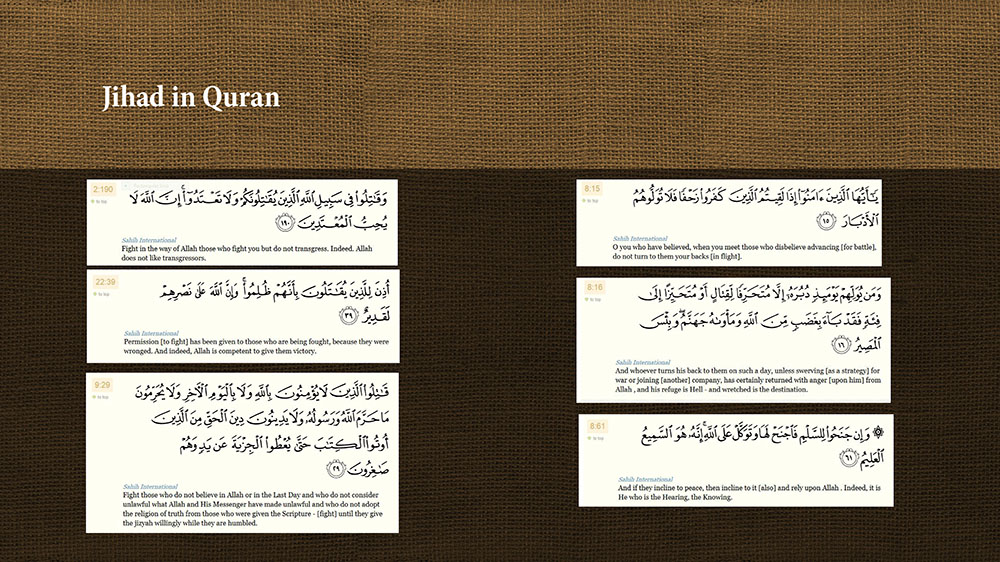 Jihad in Quran
2:190
to top
وَقَٰتِلُوا۟ فِى سَبِيلِ ٱللَّهِ ٱلَّذِينَ يُقَٰتِلُونَكُمْ وَلَا تَعْتَدُوٓا۟ ۚ إِنَّ ٱللَّهَ لَا
يُحِبُّ ٱلْمُعْتَدِينَ ١٩٠
Sahih International
Fight in the way of Allah those who fight you but do not transgress. Indeed. Allah
does not like transgressors.
22:39
to top
أُذِنَ لِلَّذِينَ يُقَٰتَلُونَ بِأَنَّهُمْ ظُلِمُوا۟ ۚ وَإِنَّ ٱللَّهَ عَلَىٰ نَصْرِهِمْ
لَقَدِيرٌ ٣٩
Sahih International
Permission [to fight] has been given to those who are being fought, because they were
wronged. And indeed, Allah is competent to give them victory.
9:29
to top
قَٰتِلُوا۟ ٱلَّذِينَ لَا يُؤْمِنُونَ بِٱللَّهِ وَلَا بِٱلْيَوْمِ ٱلْءَاخِرِ وَلَا يُحَرِّمُونَ
مَا حَرَّمَ ٱللَّهُ وَرَسُولُهُۥ وَلَا يَدِينُونَ دِينَ ٱلْحَقِّ مِنَ ٱلَّذِينَ
أُوتُوا۟ ٱلْكِتَٰبَ حَتَّىٰ يُعْطُوا۟ ٱلْجِزْيَةَ عَن يَدٍ وَهُمْ
صَٰغِرُونَ ٢٩
Sahih International
Fight those who do not believe in Allah or in the Last Day and who do not consider
unlawful what Allah and His Messenger have made unlawful and who do not adopt
the religion of truth from those who were given the Scripture - [fight] until they give
the jizyah willingly while they are humbled.
8:15
to top
يَٰٓأَيُّهَا ٱلَّذِينَ ءَامَنُوٓا۟ إِذَا لَقِيتُمُ ٱلَّذِينَ كَفَرُوا۟ زَحْفًا فَلَا تُوَلُّوهُمُ
ٱلْأَدْبَارَ ١٥
Sahih International
O you who have believed, when you meet those who disbelieve advancing [for battle],
do not turn to them your backs [in flight].
8:16
to top
وَمَن يُوَلِّهِمْ يَوْمَئِذٍ دُبُرَهُۥٓ إِلَّا مُتَحَرِّفًا لِّقِتَالٍ أَوْ مُتَحَيِّزًا إِلَىٰ
فِئَةٍ فَقَدْ بَآءَ بِغَضَبٍ مِّنَ ٱللَّهِ وَمَأْوَىٰهُ جَهَنَّمُ ۖ وَبِئْسَ
ٱلْمَصِيرُ ١٦
Sahih International
And whoever turns his back to them on such a day, unless swerving [as a strategy] for
war or joining [another] company, has certainly returned with anger [upon him] from
Allah , and his refuge is Hell - and wretched is the destination.
8:61
to top
۞ وَإِن جَنَحُوا۟ لِلسَّلْمِ فَٱجْنَحْ لَهَا وَتَوَكَّلْ عَلَى ٱللَّهِ ۚ إِنَّهُۥ هُوَ ٱلسَّمِيعُ
ٱلْعَلِيمُ ٦١
Sahih International
And if they incline to peace, then incline to it [also] and rely upon Allah . Indeed, it is
He who is the Hearing, the Knowing.